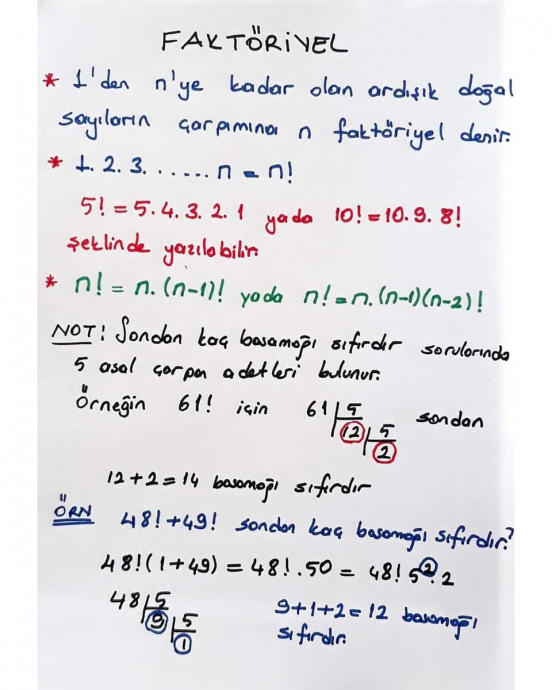 FAKTÖRİYEL
* 1'den n'ye kadar olan ardışık doğal
sayıların çarpımına n faktöriyel denir.
* 1.2.3.......n = n!
5! = 5.4.3.2.1 yada 10! = 10.9.8!
şeklinde yazılabilir.
* n! = n.(n-1)! yada n! = n.(n-1)(n-2)!
NOT! Sondan kaç basamağı sıfırdır sorularında
5 asal çarpan adetleri bulunur.
Örneğin 61! için 61 | 5 sondan
12 | 5
2
12+2=14 basamağı sıfırdır
ÖRN 48!+49! sondan kaç basamağı sıfırdır?
48!(1+49) = 48!.50 = 48!5².2
48 | 5 9+1+2=12 basamağı
9 | 5 sıfırdır.
1